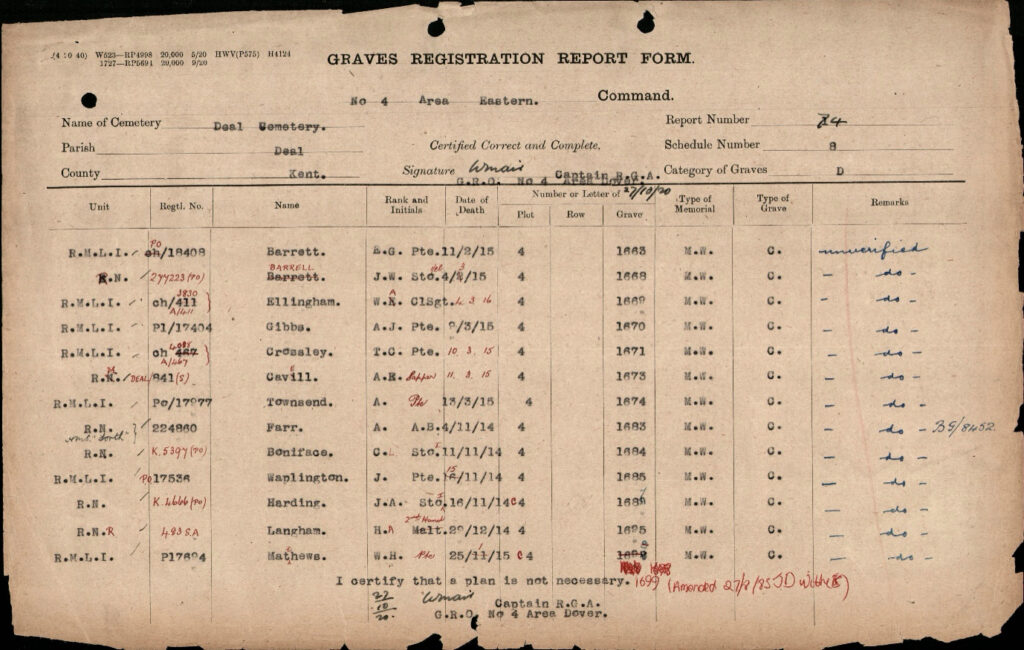 (4 10 40) W523—RP4998 20,000 5/20 HWV(P575) H4124
1727—RP5691 20,000 9/20
GRAVES REGISTRATION REPORT FORM.
No 4 Area Eastern. Command.
Name of Cemetery Deal Cemetery. Report Number 4
Parish Deal Certified Correct and Complete. Schedule Number 8
County Kent. Signature Captain R.G.A. Category of Graves D
G.R.O. No 4 Area Dover. 27/10/20
Unit Regtl. No. Name Rank and Initials Date of Death Number or Letter of Plot Row Grave Type of Memorial Type of Grave Remarks
R.M.L.I. PO ch/18408 Barrett. E.G. Pte. 11/2/15 4 1663 M.W. C. unverified
R.N. 277223(PO) BARRELL Barrett. J.W. Sto. 4/3/15 4 1668 M.W. C. - do -
R.M.L.I. ch/411 3830 A/411 Ellingham. W.A. ClSgt. 4 3 16 4 1669 M.W. C. - do -
R.M.L.I. Pl/17404 Gibbs. A.J. Pte. 9/3/15 4 1670 M.W. C. - do -
R.M.L.I. ch 467 4085 A/467 Crossley. T.G. Pte. 10 3 15 4 1671 M.W. C. - do -
R.M. DEAL/841(S) Cavell. A.E. Sapper 11 3 15 4 1673 M.W. C. - do -
R.M.L.I. Po/17977 Townsend. A. Pte 13/3/15 4 1674 M.W. C. - do -
R.N. 224860 Farr. A. A.B. 4/11/14 4 1683 M.W. C. - do - BS/8452
R.N. K.5397(PO) Boniface. C.L. Sto. I 11/11/14 4 1684 M.W. C. - do -
R.M.L.I. PO 17536 Waplington. J. Pte. 15/11/14 4 1685 M.W. C. - do -
R.N. K.4666(PO) Harding. J.A. Sto. I 16/11/14 C 4 1689 M.W. C. - do -
R.N.R 493 S.A Langham. H.A 2nd Hand Malt. 29/12/14 4 1695 M.W. C. - do -
R.M.L.I. P17694 Mathews. W.H. Pte 25/11/15 C 4 M.W. C. - do -
I certify that a plan is not necessary. 1699 (Amended 27/8/85
22/10/20 Captain R.G.A.
G.R.O. No 4 Area Dover.